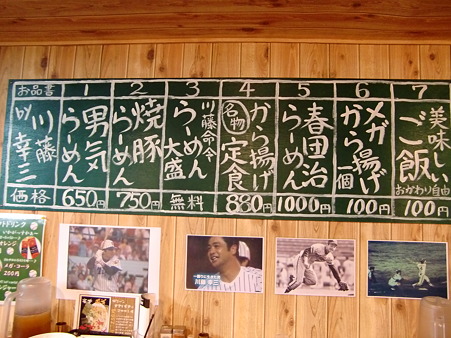 お品書
by 川藤幸三
価格
1
男気らーめん
650円
2
焼豚らーめん
750円
3
川藤命令
らーめん大盛
無料
4
名物
から揚げ定食
880円
5
春田治らーめん
1000円
6
メガから揚げ
一個
100円
7
美味しいご飯
おかわり自由
100円
メガ・コーラ
200円
川藤幸三